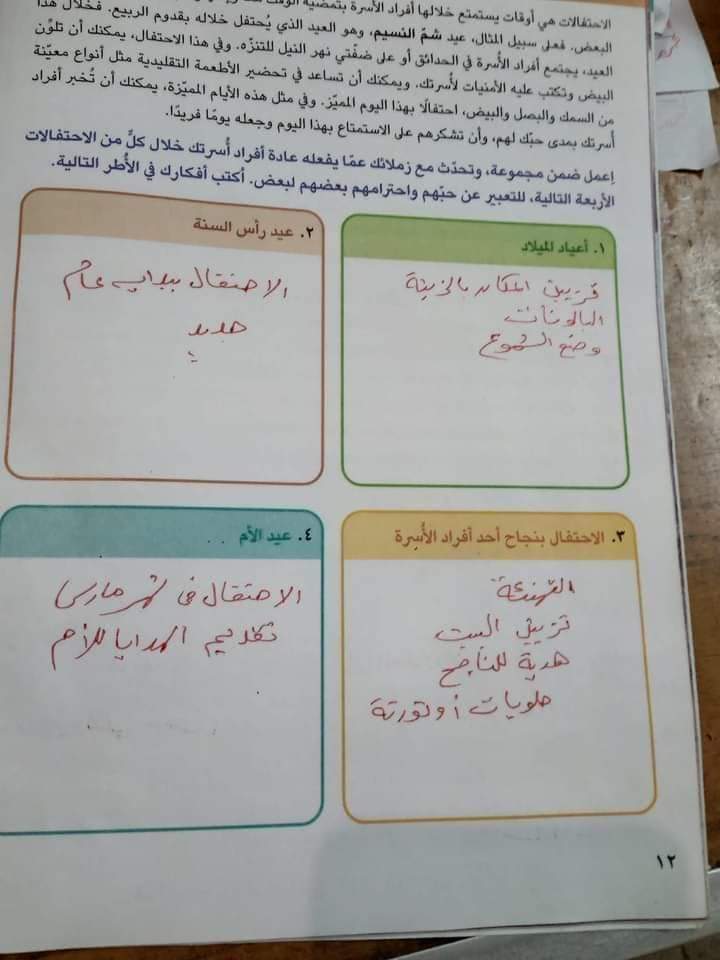 الاحتفالات هي أوقات يستمتع خلالها أفراد الأسرة بتمضية الوقت
البعض. فعلى سبيل المثال، عيد شمّ النسيم، وهو العيد الذي يُحتفل خلاله بقدوم الربيع. فخلال هذا
العيد، يجتمع أفراد الأسرة في الحدائق أو على ضفّتي نهر النيل للتنزّه. وفي هذا الاحتفال، يمكنك أن تلوّن
البيض وتكتب عليه الأمنيات لأسرتك. ويمكنك أن تساعد في تحضير الأطعمة التقليدية مثل أنواع معيّنة
من السمك والبصل والبيض، احتفالًا بهذا اليوم المميّز. وفي مثل هذه الأيام المميّزة، يمكنك أن تُخبر أفراد
أسرتك بمدى حبّك لهم، وأن تشكرهم على الاستمتاع بهذا اليوم وجعله يومًا فريدًا.
إعمل ضمن مجموعة، وتحدّث مع زملائك عمّا يفعله عادة أفراد أُسرتك خلال كلٍّ من الاحتفالات
الأربعة التالية، للتعبير عن حبّهم واحترامهم بعضهم لبعض. أكتب أفكارك في الأُطر التالية.
١. أعياد الميلاد
تزيين المكان بالزينة
البالونات
وضع الشموع
٢. عيد رأس السنة
الاحتفال ببداية عام
جديد
٣. الاحتفال بنجاح أحد أفراد الأُسرة
التهنئة
تزيين البيت
هدية للناجح
حلويات أو تورتة
٤. عيد الأم
الاحتفال فى شهر مارس
تقديم الهدايا للأم
١٢